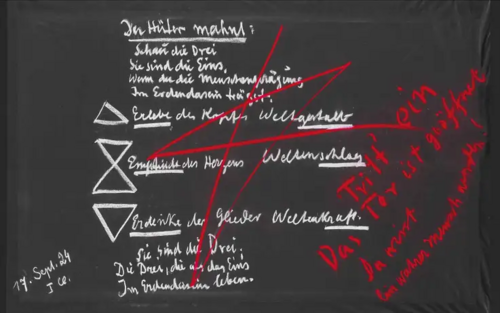 Der Hüter mahnt:
Schau die Drei
Sie sind die Eins,
Wenn du die Menschenprägung
Im Erdendasein trägst.
Erlebe des Kopfes Weltgestalt
Empfinde des Herzens Weltenschlag
Erdenke der Glieder Weltenkraft.
Sie sind die Drei,
Die Drei, die als das Eins
Im Erdendasein leben.
17. Sept. 24
Tritt ein
Das Tor ist geöffnet
Du wirst
ein wahrer Mensch werden